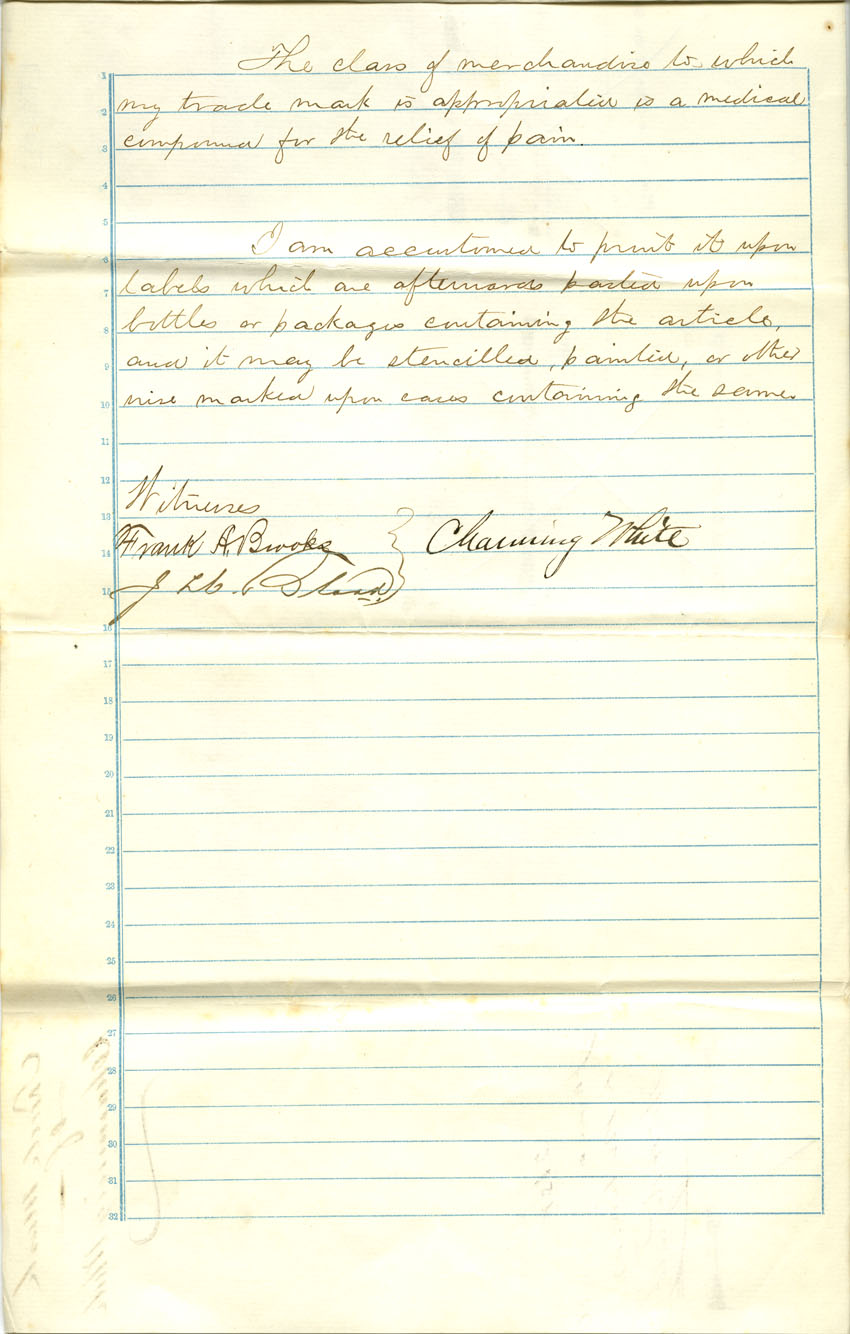 The class of merchandise to which
my trade mark is appropriated is a medical
compound for the relief of pain.
I am accustomed to print it upon
labels which are afterwards pasted upon
bottles or packages containing the article,
and it may be stencilled, painted, or other
wise marked upon cases containing the same.
Witnesses
Frank A. Brooks
Channing White
J
1
2
3
4
5
6
7
8
9
10
11
12
13
14
15
16
17
18
19
20
21
22
23
24
25
26
27
28
29
30
31
32